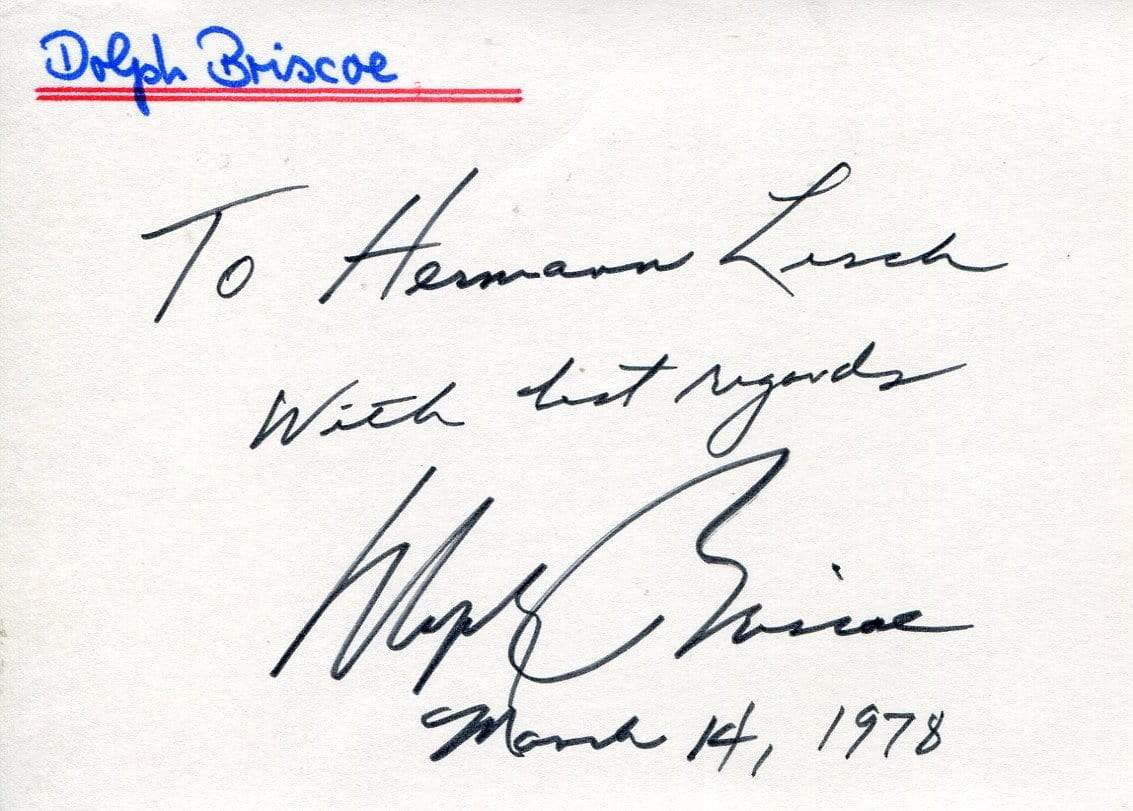 Dolph Briscoe
To Hermann Lesch
With best regards
Dolph Briscoe
March 14, 1978